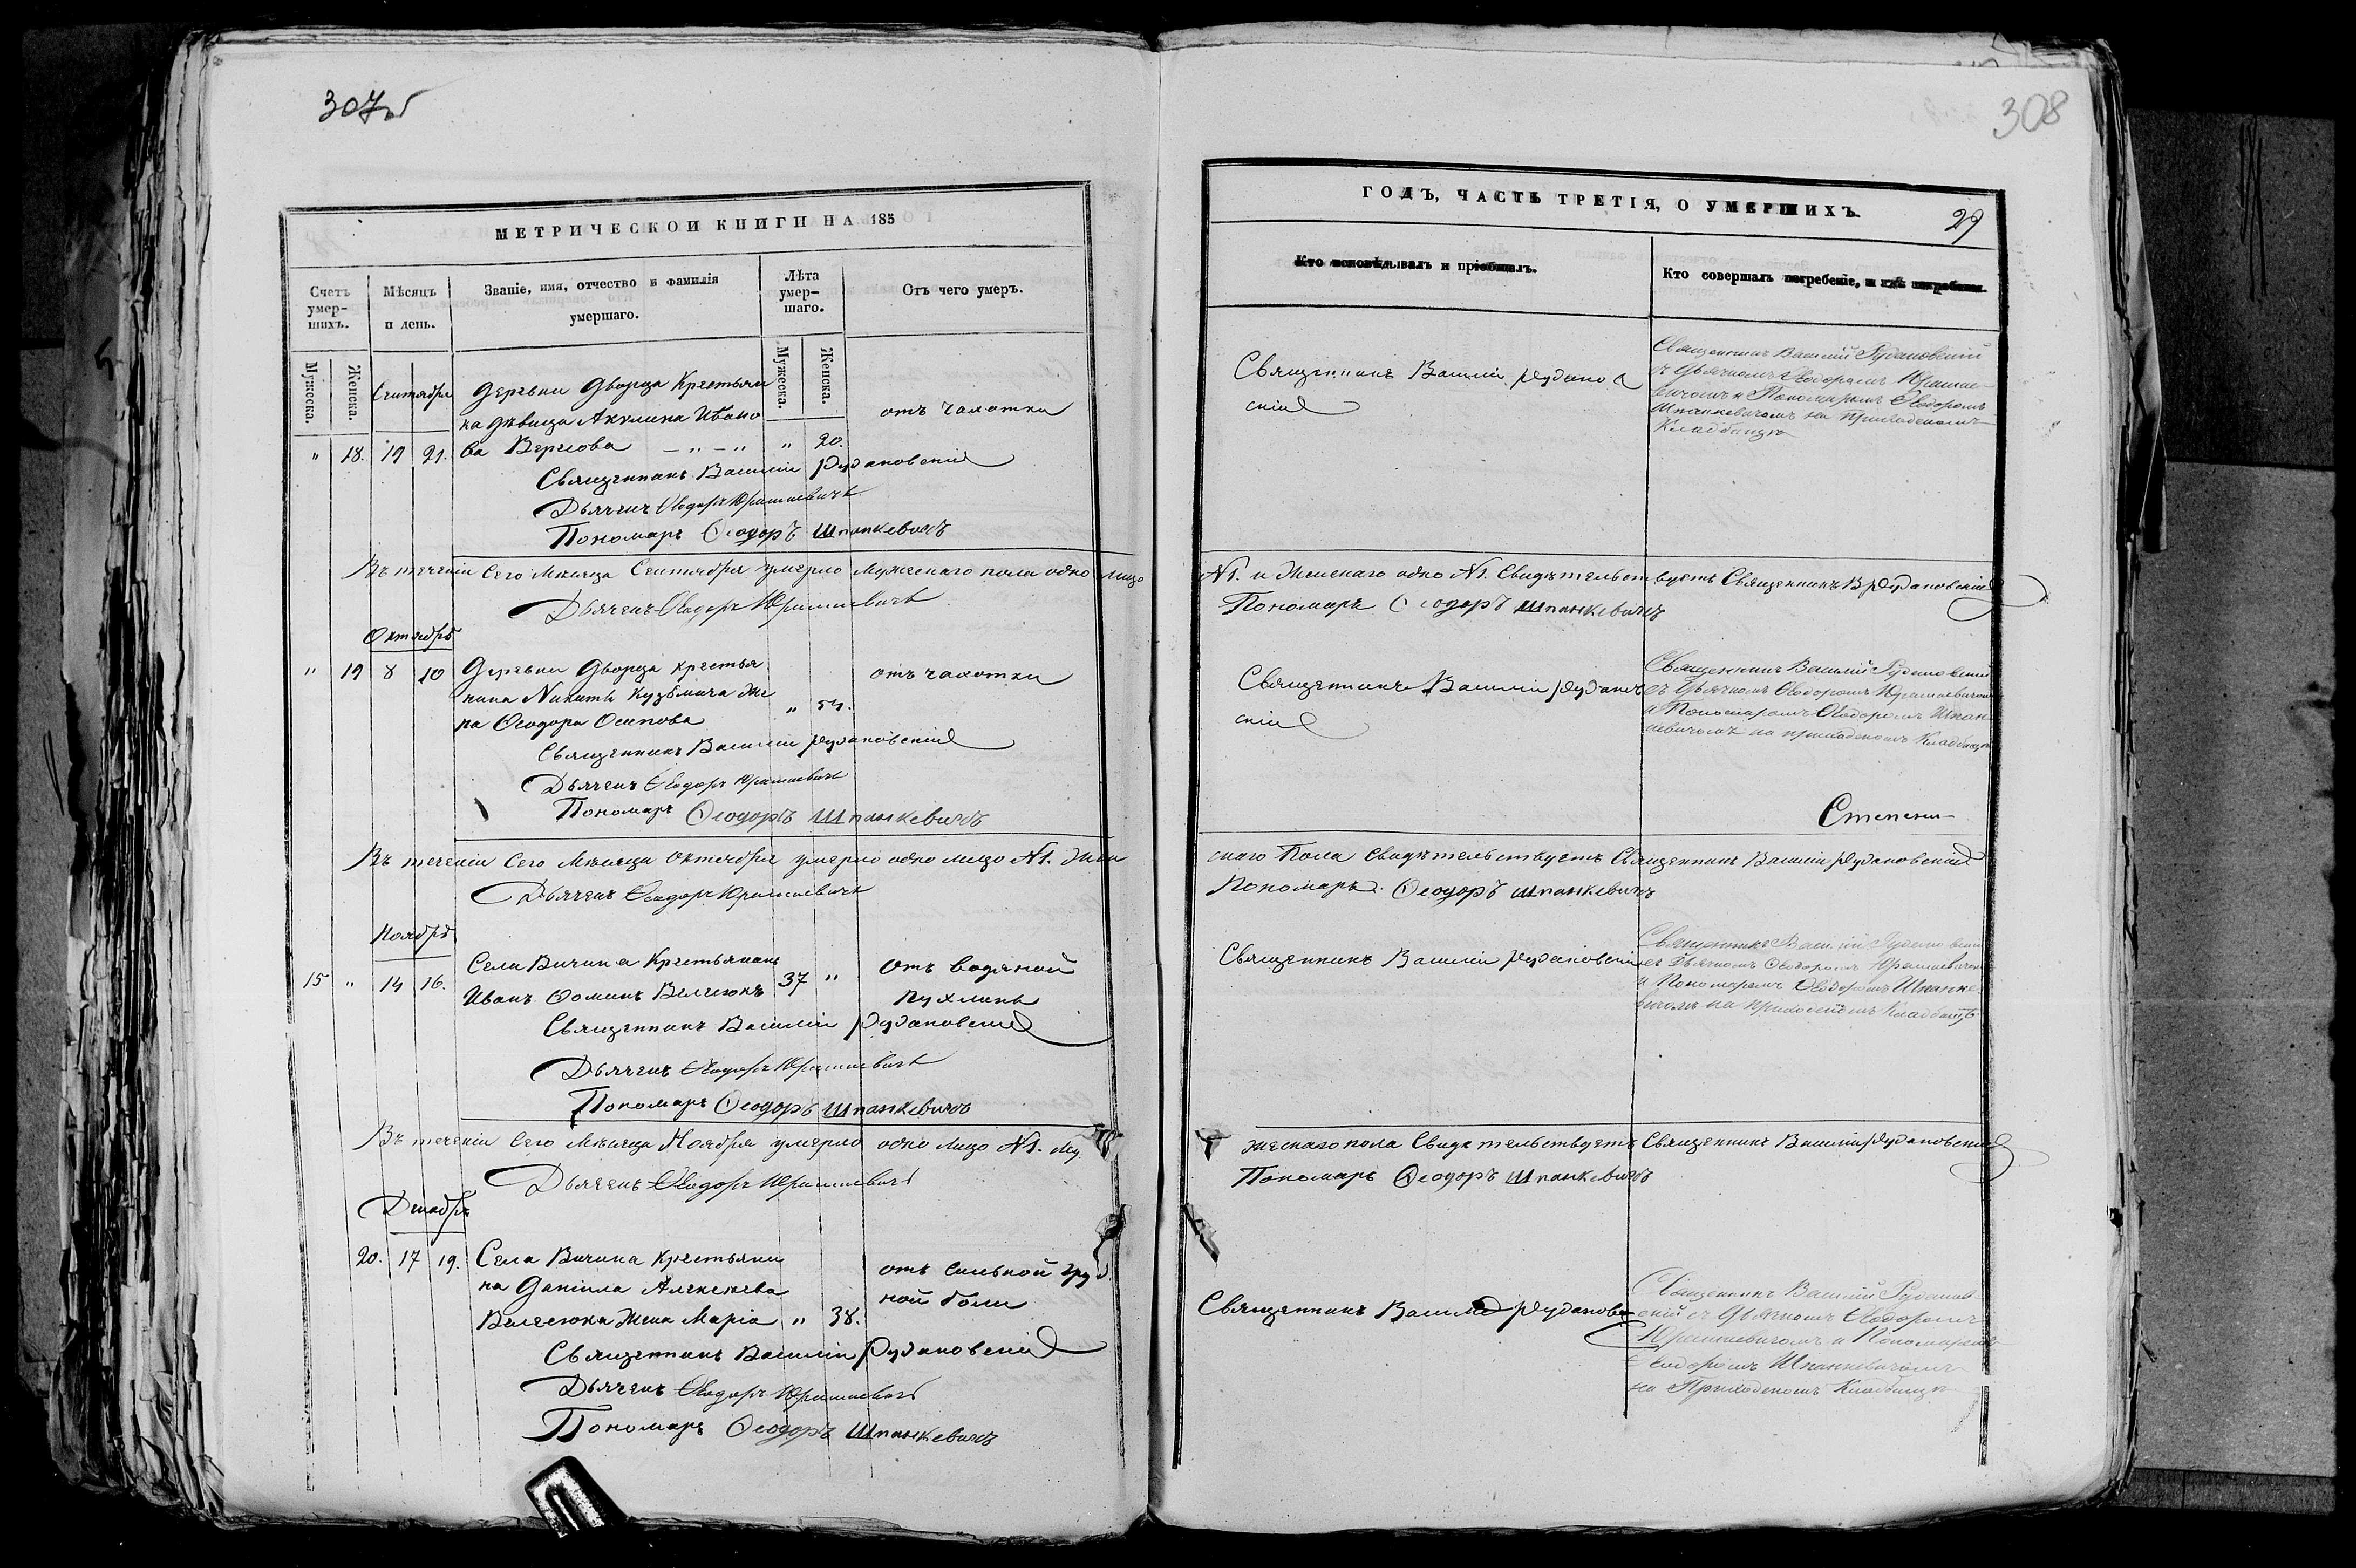 307об
МЕТРИЧЕСКОЙ КНИГИ НА 185
Счетъ умер-шихъ.
Мѣсяцъ и день.
Званіе, имя, отчество и фамилія умершаго.
Лѣта умер-шаго.
Отъ чего умеръ.
Мужеска.
Женска.
Мужеска.
Женска.
Сентября
Деревни Дворца Крестьян
ка дѣвица Акулина Ивано
отъ чахотки
" 18. 19 21. ва " 20.
Священникъ Василій Рудановскій
Дьячекъ Ѳеодоръ
Пономарь Ѳеодоръ Шпанкевичъ
Въ теченіи сего Мѣсяца Сентября умерло мужескаго пола одно лицо
Дьячекъ Ѳеодоръ
Октябрь
" 19 8 10 Деревни Дворца крестья
отъ чахотки
нина Никиты Кузьмича же
на Ѳеодора Осипова " 54.
Священникъ Василій Рудановскій
Дьячекъ Ѳеодоръ
Пономарь Ѳеодоръ Шпанкевичъ
Въ теченіи сего Мѣсяца Октября умерло одно лицо №1. жен
Дьячекъ Ѳеодоръ
Ноябрь
15 " 14 16. Села Вичина Крестьянинъ
Иванъ Ѳоминъ 37 "
отъ водяной
пухлины
Священникъ Василій Рудановскій
Дьячекъ Ѳеодоръ
Пономарь Ѳеодоръ Шпанкевичъ
Въ теченіи сего Мѣсяца Ноября умерло одно лицо №1. му
Дьячекъ Ѳеодоръ
Декабрь
20. 17 19. Села Вичина крестьяни
на Даніила Алексѣева
жена Марія " 38.
отъ сильной груд
ной боли
Священникъ Василій Рудановскій
Дьячекъ Ѳеодоръ
Пономарь Ѳеодоръ Шпанкевичъ
308
ГОДЪ, ЧАСТЬ ТРЕТІЯ, О УМЕРШИХЪ.
29
Кто исповѣдывалъ и пріобщалъ.
Кто совершалъ погребеніе, и гдѣ погребены.
Священникъ Василій Рудановскій
Священникъ Василій Рудано
скій
съ Дьячкомъ Ѳеодоромъ
и Пономаремъ Ѳеодоромъ
Шпанкевичомъ на приходскомъ
Кладбищѣ
№1. и женскаго одно №1. Свидѣтельствуетъ Священникъ В Рудановскій
Пономарь Ѳеодоръ Шпанкевичъ
Священникъ Василій Рудановскій
Священникъ Василій Рудано
скій
съ Дьячкомъ Ѳеодоромъ
и Пономаремъ Ѳеодоромъ Шпан
кевичомъ на приходскомъ Кладбищѣ
скаго Пола Свидѣтельствуетъ Священникъ Василій Рудановскій
Пономарь Ѳеодоръ Шпанкевичъ
Священникъ Василій Рудановскій
Священникъ Василій Рудановскій
съ Дьячкомъ Ѳеодоромъ
и Пономаремъ Ѳеодоромъ Шпанке
вичомъ на приходскомъ Кладбищѣ
жескаго пола Свидѣтельствуетъ Священникъ Василій Рудановскій
Пономарь Ѳеодоръ Шпанкевичъ
Священникъ Василій Рудановс
Священникъ Василій Руданов
скій съ Дьячкомъ Ѳеодоромъ
и Пономаремъ
Ѳеодоромъ Шпанкевичомъ
на Приходскомъ Кладбищѣ